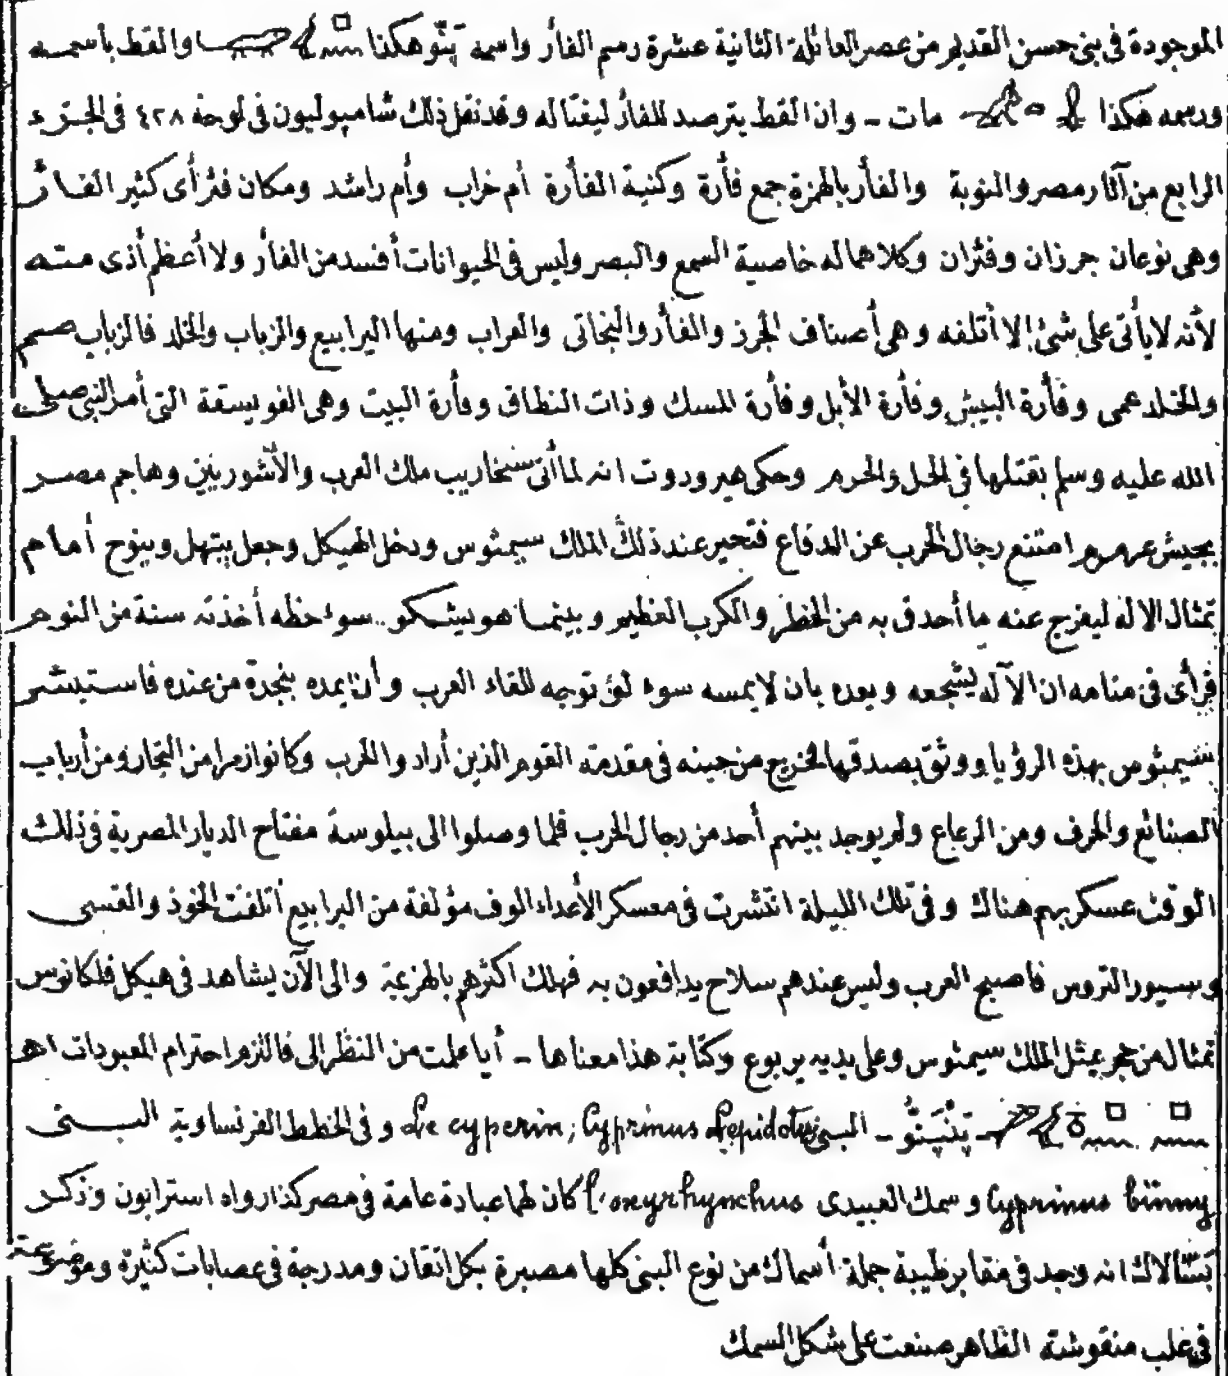 الموجودة فى بنى حسن القديم من عصر العائلة الثانية عشرة رسم الفأر واسمه پَنُّو هكذا والقط باسمه
ورسمه هكذا مات - وان القط يترصد للفأر ليغتاله وقد نقل ذلك شامپوليون فى لوحة ٤٢٨ فى الجزء
الرابع من آثار مصر والنوبة والفأر بالهمزة جمع فأرة وكنية الفأرة أم خراب وأم راشد ومكان فئر أى كثير الفأر
وهى نوعان جرزان وفئران وكلاهما له خاصية السمع والبصر وليس فى الحيوانات أفسد من الفأر ولا أعظم أذى منه
لأنه لا يأتى على شئ إلا أتلفه وهى أصناف الجرز والفأر والبخاتى والعراب ومنها اليرابيع والزباب والخلد فالزباب صم
والخلد عمى وفأرة البيش وفأرة الأبل وفأرة المسك وذات النطاق وفأرة البيت وهى الفويسقة التى أمر النبى صلى
الله عليه وسلم بقتلها فى الحل والحرم وحكى هيرودوت انه لما أتى سنخاريب ملك العرب والأشوريين وهاجم مصر
بجيش عرمرم امتنع رجال الحرب عن الدفاع فتحير عند ذلك الملك سيمثوس ودخل الهيكل وجعل يبتهل وينوح أمام
تمثال الاله ليفرج عنه ما أحدق به من الخطر والكرب العظيم وبينما هو يشكو سوء حظه أخذته سنة من النوم
فرأى فى منامه ان الآله يشجعه ويعده بان لا يمسه سوء لو توجه للقاء العرب وأن يمده بنجدة من عنده فاستبشر
سيمثوس بهذه الرؤيا ووثق بصدقها فخرج من حينه فى مقدمة القوم الذين أرادوا الحرب وكانوا زمرا من التجار ومن أرباب
الصنائع والحرف ومن الرعاع ولم يوجد بينهم أحد من رجال الحرب فلما وصلوا الى بيلوسة مفتاح الديار المصرية فى ذلك
الوقت عسكر بهم هناك وفى تلك الليلة انتشرت فى معسكر الأعداء الوف مؤلفة من اليرابيع أتلفت الخوذ والقسى
وسيور التروس فاصبح العرب وليس عندهم سلاح يدافعون به فهلك اكثرهم بالهزيمة والى الآن يشاهد فى هيكل فلكانوس
تمثال من حجر يمثل الملك سيمثوس وعلى يديه يربوع وكتابة هذا معناها - أيا علمت من النظر الى فالتزم احترام المعبودات اهـ
- پَنْپَنُّو - البنى Le cyperin; Cyprinus Lepidotus وفى الخطط الفرنساوية البنى
Cyprinus binny وسمك العبيدى L'oxyrhynchus كان لهما عبادة عامة فى مصر كذا رواه استرابون وذكر
پسّالاك انه وجد فى مقابر طيبة جملة أسماك من نوع البنى كلها مصبرة بكل اتقان ومدرجة فى عصابات كثيرة وموضوعة
فى علب منقوشة الظاهر صنعت على شكل السمك